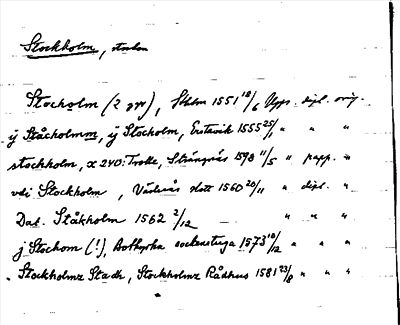 Stockholm, staden
Stocholm (2 ggr), Sthlm 1551 18/6 Upps. dipl. orig.
ij Ståcholmm, ij Stocholm, Entavik 1555 25/1 " " "
stockholm, x 240: Trolle, Strängnäs 1598 11/5 " papp. "
vdi Stockholm, Västerås slott 1560 20/11 " dipl. "
Dat. Ståkholm 1562 2/12 " " "
j Stockom (!), Botkyrka sockenstuga 1573 18/12 " " "
Stockholmz Stadz, Stockholmz Rådhus 1581 23/8 " " "